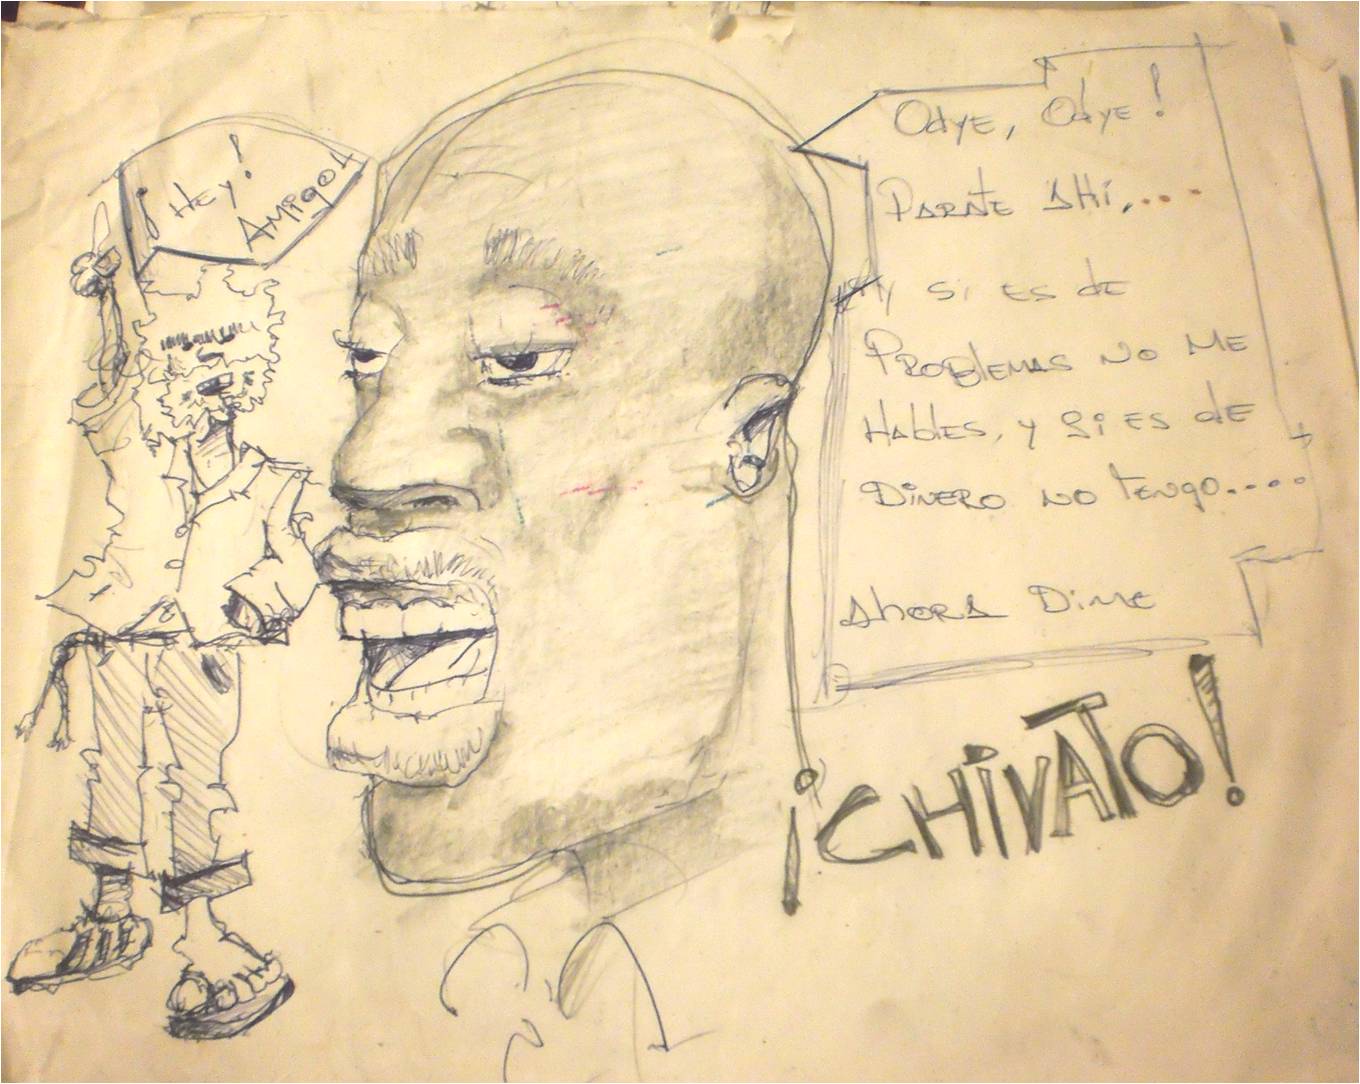 ¡Hey!
Amigo!
Odye, Odye!
Parate Ahi,....
y si es de
Problemas no me
Hables, y si es de
Dinero no tengo....
Ahora Dime
¡CHIVATO!